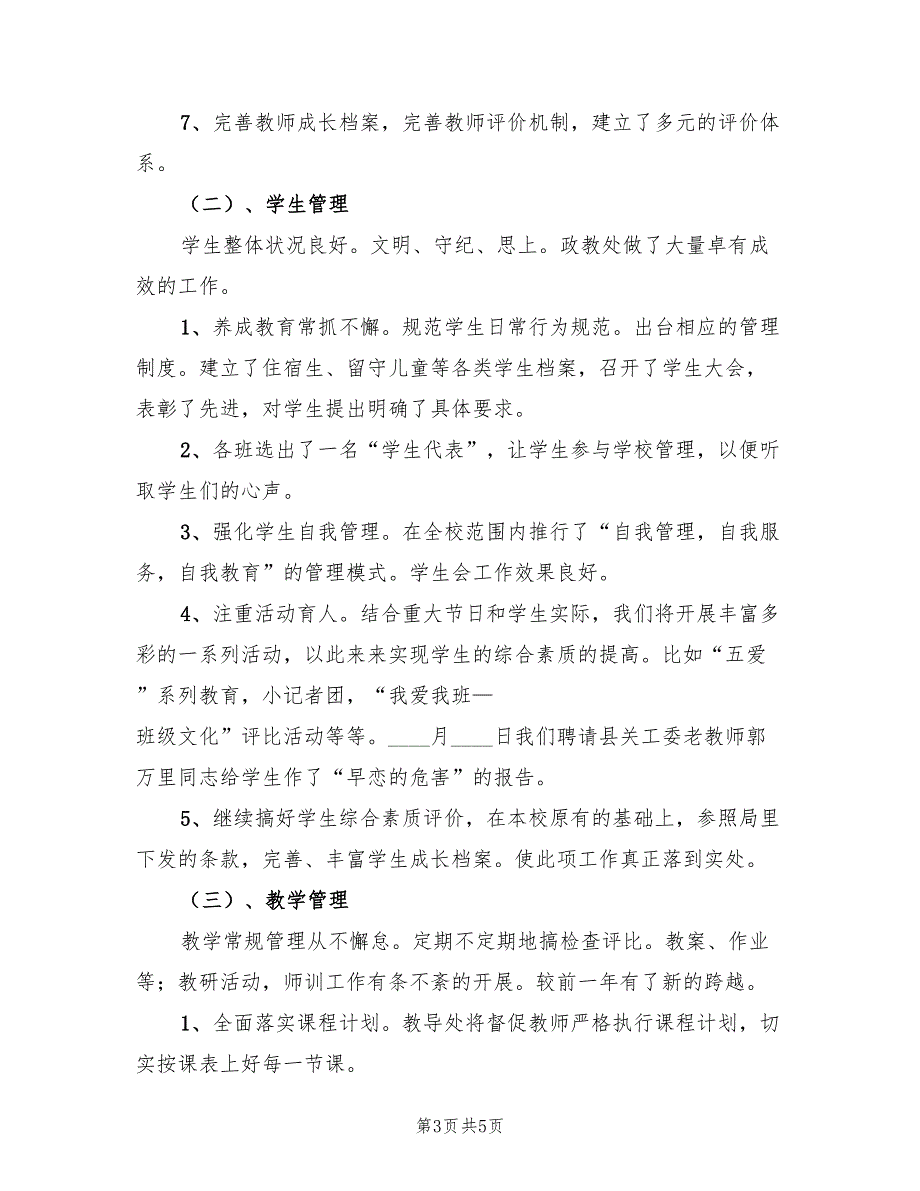 7、完善教师成长档案，完善教师评价机制，建立了多元的评价体
系。
（二）、学生管理
学生整体状况良好。文明、守纪、思上。政教处做了大量卓有成
效的工作。
1、养成教育常抓不懈。规范学生日常行为规范。出台相应的管理
制度。建立了住宿生、留守儿童等各类学生档案，召开了学生大会，
表彰了先进，对学生提出明确了具体要求。
2、各班选出了一名“学生代表”，让学生参与学校管理，以便听
取学生们的心声。
3、强化学生自我管理。在全校范围内推行了“自我管理，自我服
务，自我教育”的管理模式。学生会工作效果良好。
4、注重活动育人。结合重大节日和学生实际，我们将开展丰富多
彩的一系列活动，以此来来实现学生的综合素质的提高。比如“五爱
”系列教育，小记者团，“我爱我班—
班级文化”评比活动等等。____月____日我们聘请县关工委老教师郭
万里同志给学生作了“早恋的危害”的报告。
5、继续搞好学生综合素质评价，在本校原有的基础上，参照局里
下发的条款，完善、丰富学生成长档案。使此项工作真正落到实处。
（三）、教学管理
教学常规管理从不懈怠。定期不定期地搞检查评比。教案、作业
等；教研活动，师训工作有条不紊的开展。较前一年有了新的跨越。
1、全面落实课程计划。教导处将督促教师严格执行课程计划，切
实按课表上好每一节课。
第3页共5页